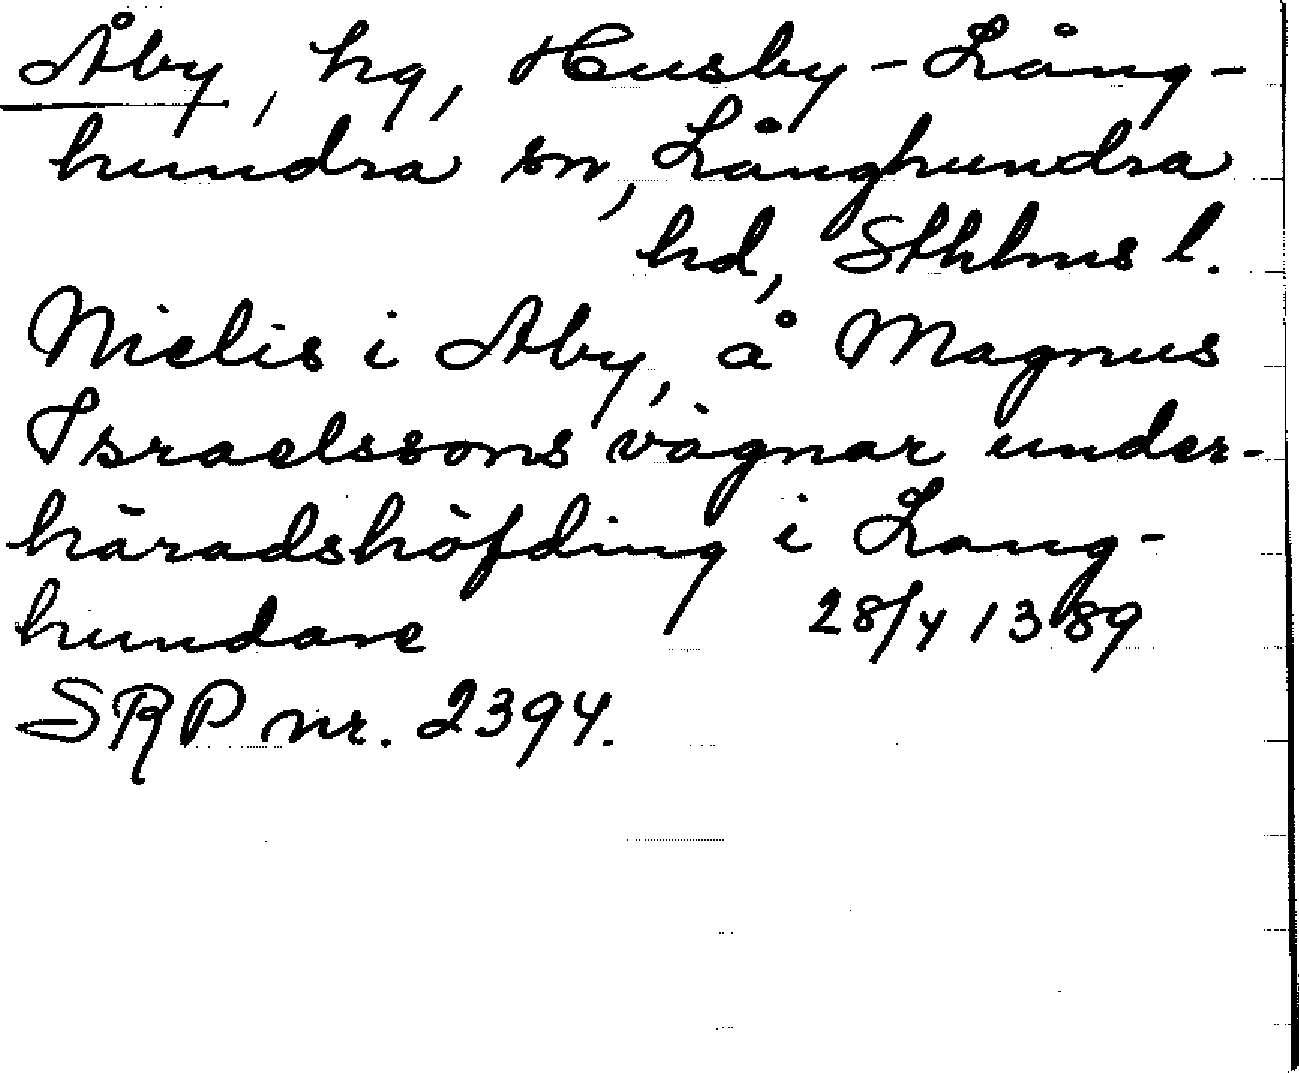 Åby, hg, Husby-Lång-
hundra sn, Långhundra
hd, Sthlms l.
Nielis i Aby, å Magnus
Israelssons vägnar under-
häradshöfding i Lang-
hundare 28/4 1389
SRP nr. 2394.